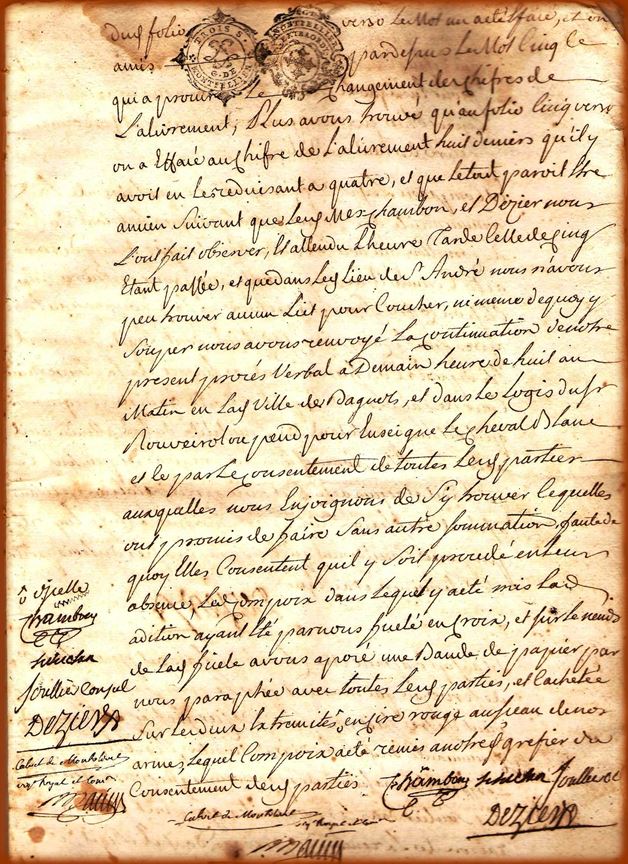 dud folio verso Le Mot un acte effacé, et on
a mis par dessus Le Mot Cinq Ce
qui a procuré Le Changement de Chifres de
L'alivrement, Plus avons trouvé qu'au folio Cinq verso
on a Effacé au Chifre de L'alivrement huit deniers qu'il y
avoit en Les reduisant a quatre, et que le tout paroit Etre
ancien Suivant que Lesd Mes Chambon, et Dezier nous
L'ont fait observer, Et attendu L'heure Tarde Celle de Cinq
Etant passée, et que dans Led Lieu de St André nous n'avons
peu trouver aucun Lict pour Coucher, ni meme de quoy y
Souper nous avons renvoyé La Continuation de notre
present procés Verbal a Demain heure de huit au
Matin en Lad Ville de Bagnols, et dans Le Logis du Sr
Rouveirol ou pend pour Enseigne Le Cheval Blanc
et Ce par Le Consentement de toutes Lesd parties
auxquelles nous Enjoignons de S'y trouver Lequelles
ont promis de faire Sans autre Sommation, faute de
quoy Elles Consentent qu'il y Soit procedé en Leur
absence, Led Compoix dans Lequel y a été mis Lad
adition ayant Eté par nous ficelé en Croix, et sur Le neud
de Lad ficele avons aposé une Bande de papier, par
nous paraphée avec toutes Lesd parties, et Cachetée
Sur Les deux Extremités en Cire rouge au Sceau de nos
armes, Lequel Compoix a été remis a notred grefier du
Consentement desd parties. Chambon Soullier
DEZIER
Calvet de Montolivet
Chambon
Soullier Consul
DEZIER
Calvet de Montolivet